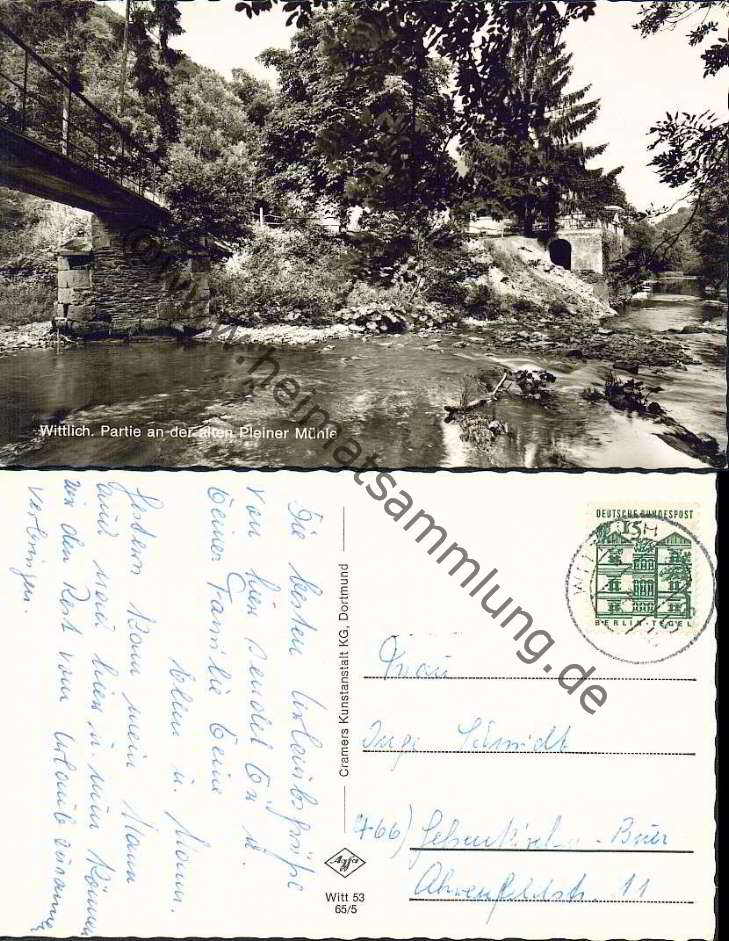 Wittlich. Partie an der alten Pleiner Mühle
© www.heimatsammlung.de
DEUTSCHE BUNDESPOST
15
BERLIN-TEGEL
Die besten Urlaubsgrüße
von hier sendet Dir u.
Deiner Familie Deine
Ellen u. Mann.
Gestern kam mein Mann
und nun können
wir den Rest vom Urlaub zusammen
verbringen.
Cramers Kunstanstalt KG, Dortmund
Frau
Inge Schmidt
466) Gelsenkirchen-Buer
Ahrenfeldstr. 11
Agfa
Witt 53
65/5